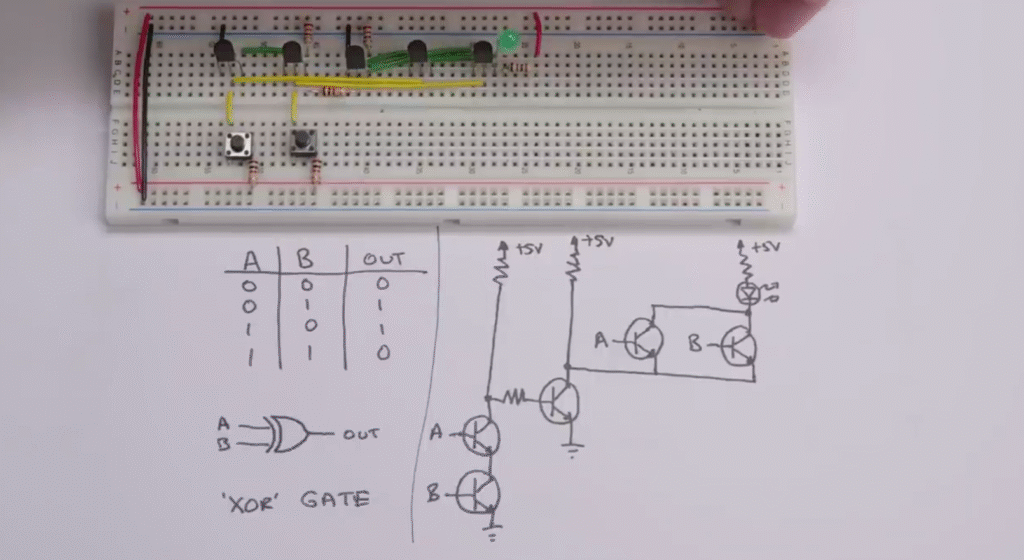 A B OUT
0 0 0
0 1 1
1 0 1
1 1 0
A
B
OUT
'XOR' GATE
+5V
+5V
+5V
A
B
A
B